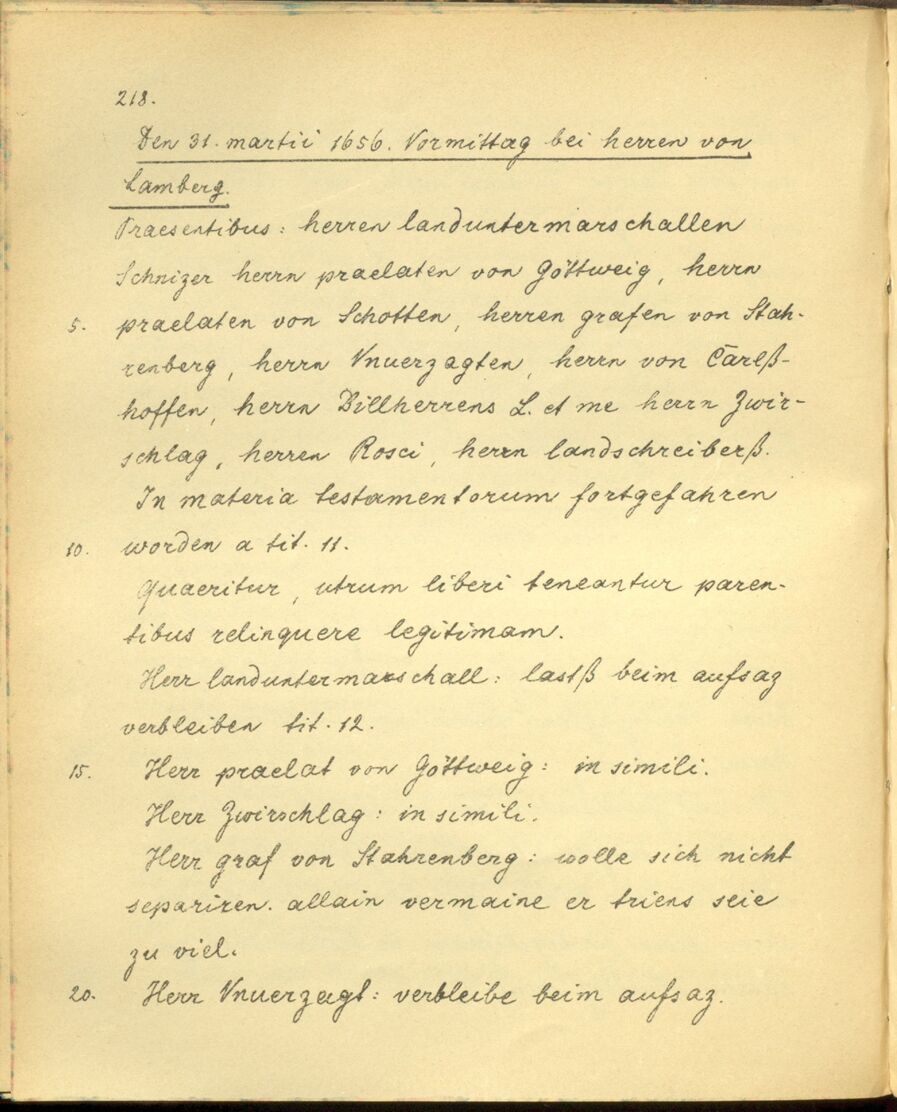 218.
Den 31. martii 1656. Vormittag bei herren von
Lamberg.
Praesentibus: herren landuntermarschallen
Schnizer herrn praelaten von Göttweig, herrn
5. praelaten von Schotten, herren grafen von Stah-
renberg, herrn Vnuerzagten, herrn von Carlß-
hoffen, herrn Dillherrens L. et me herrn Zwir-
schlag, herren Rosci, herrn landschreiberß.
In materia testamentorum fortgefahren
10. worden a tit. 11.
Quaeritur, utrum liberi teneantur paren-
tibus relinquere legitimam.
Herr landuntermarschall: lastß beim aufsaz
verbleiben tit. 12.
15. Herr praelat von Göttweig: in simili.
Herr Zwirschlag: in simili.
Herr graf von Stahrenberg: wolle sich nicht
separiren. allain vermaine er triens seie
zu viel.
20. Herr Vnuerzagt: verbleibe beim aufsaz.